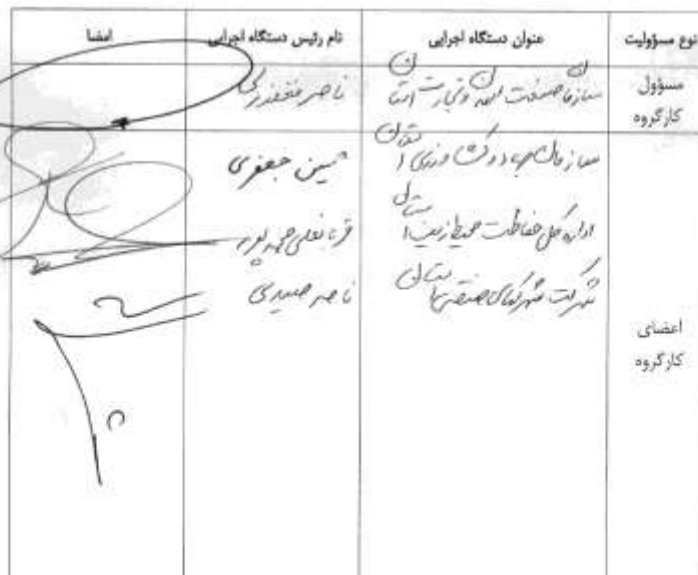 نوع مسؤولیت	عنوان دستگاه اجرایی	نام رئیس دستگاه اجرایی	امضا
مسؤول کارگروه	سازمان صنعت معدن و تجارت استان	ناصر
سازمان جهاد کشاورزی استان	جعفری
اداره کل حفاظت محیط زیست استان	قربانعلی محمدپور
شرکت شهرکهای صنعتی استان	ناصر صیدی
اعضای کارگروه